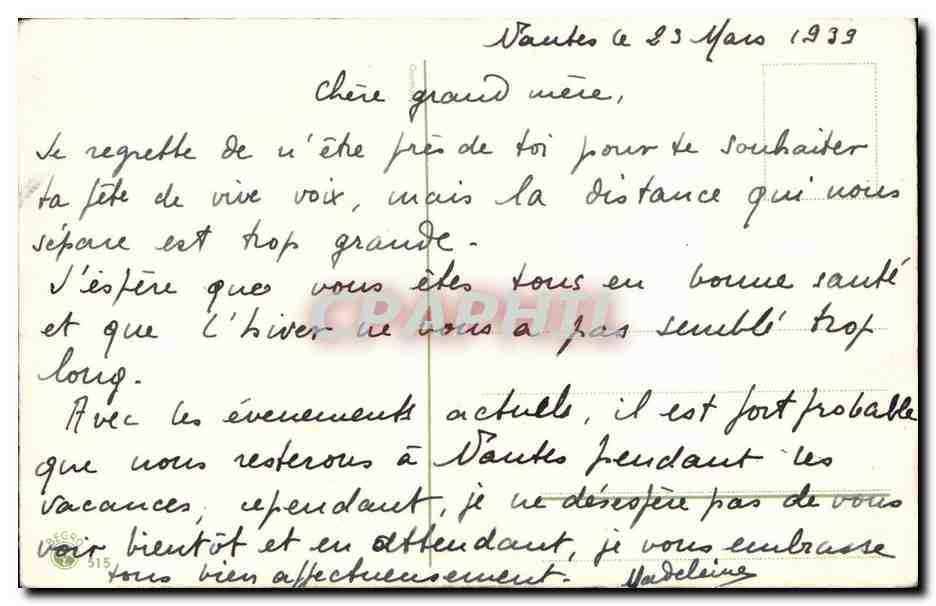 Nantes le 23 Mars 1939
Chère grand mère,
Je regrette de n'être près de toi pour te souhaiter
ta fête de vive voix, mais la distance qui nous
sépare est trop grande.
J'espère que vous êtes tous en bonne santé
et que l'hiver ne vous a pas semblé trop
long.
Avec les évenements actuels, il est fort probable
que nous resterons à Nantes pendant les
vacances, cependant, je ne désespère pas de vous
voir bientôt et en attendant, je vous embrasse
tous bien affectueusement. Madeleine
CPAPHIL
515